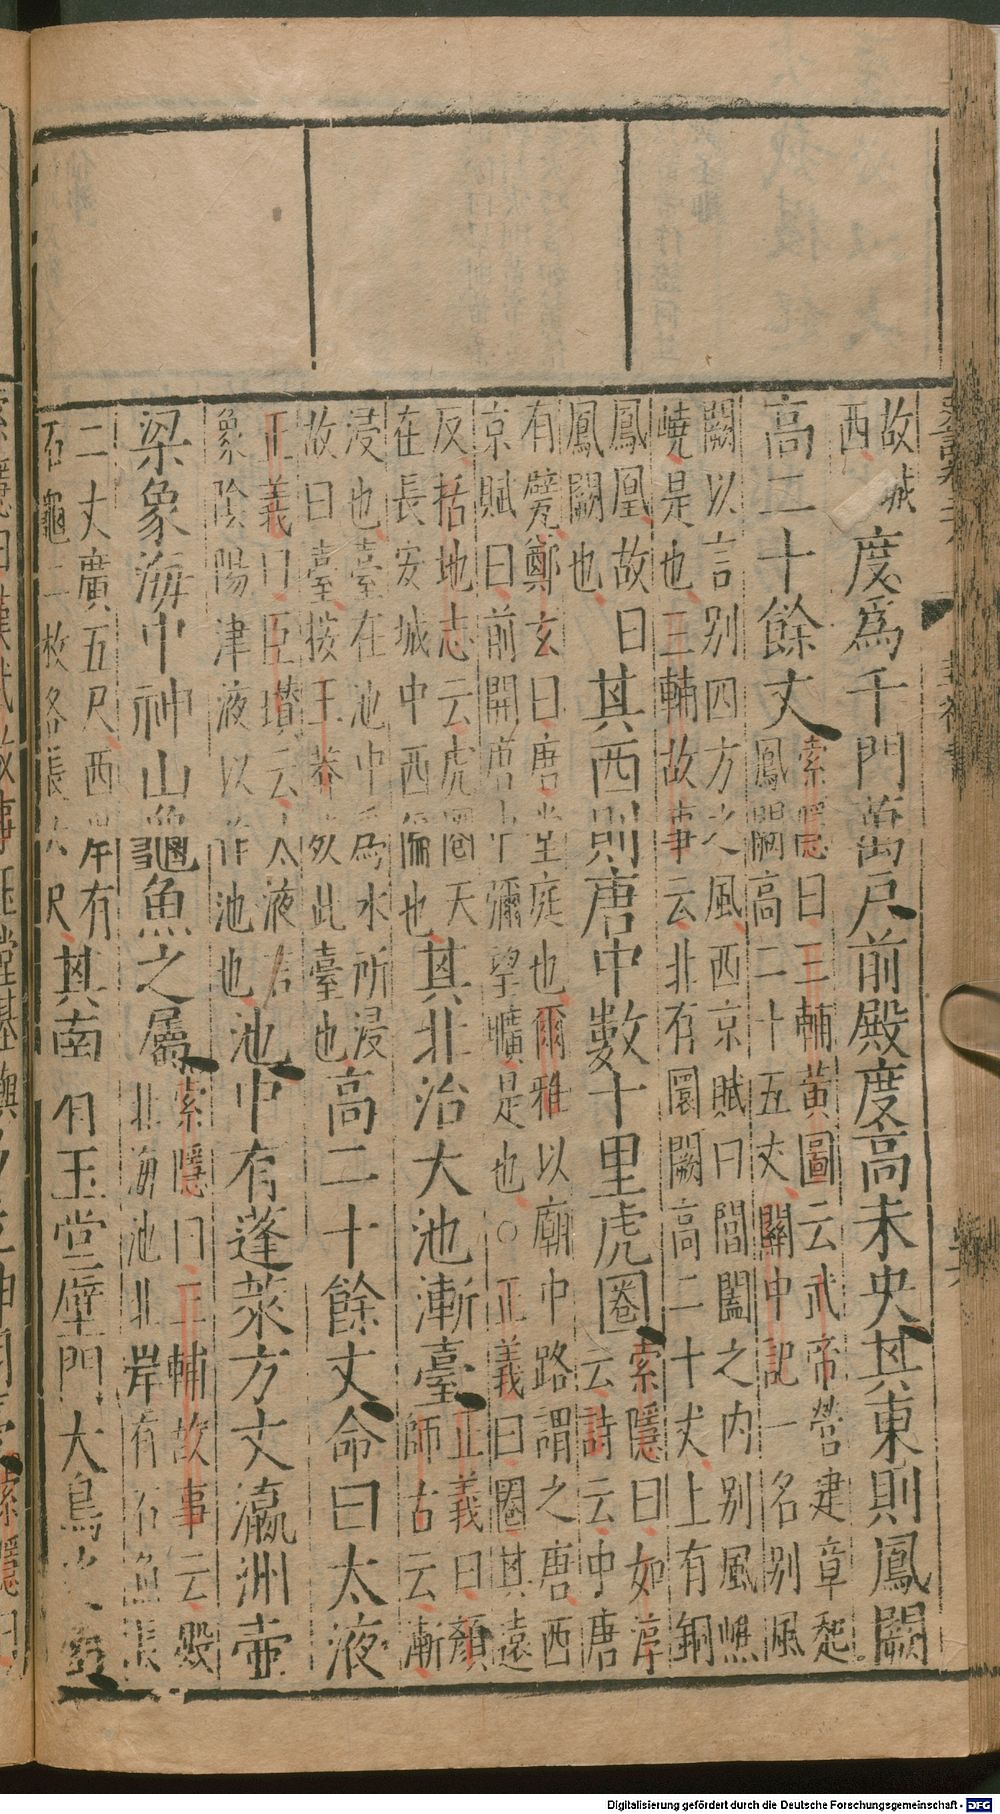 故城
西
度爲千門萬戶前殿度高未央其東則鳳闕
高二十餘丈
索隱曰三輔黃圖云武帝營建章起
鳳闕高二十五丈關中記一名別風
闕以言別四方之風西京賦曰閶闔之内別風嶕
嶢是也三輔故事云北有圜闕高二十丈上有銅
鳳凰故曰
鳳闕也
其西則唐中數十里虎圈
索隱曰如淳
云詩云中唐
有甓鄭玄曰唐堂庭也爾雅以廟中路謂之唐西
京賦曰前開唐中彌望曠是也○正義曰圈其遠
反括地志云虎圈天
在長安城中西偏也
其北治大池漸臺
正義曰顏
師古云漸
浸也臺在池中爲水所浸
故曰臺按王莽死此臺也
高二十餘丈命曰太液
正義曰臣瓚云太液言
象陰陽津液以作池也
池中有蓬萊方丈瀛洲壺
梁象海中神山龜魚之屬
索隱曰三輔故事云殿
北海池北岸有石魚長
二丈廣五尺西岸有
石龜二枚各長六尺
其南有玉堂璧門大鳥之屬
封禪書
Digitalisierung gefördert durch die Deutsche Forschungsgemeinschaft - DFG